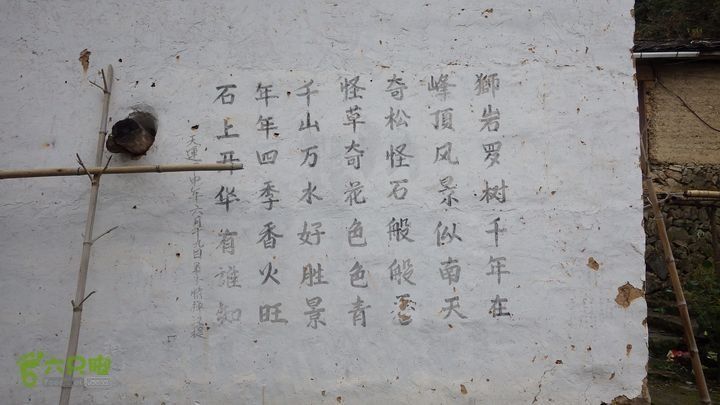 獅岩罗树千年在
峰頂风景似南天
奇松怪石般般
怪草奇花色色青
千山万水好胜景
年年四季香火旺
石上开华有誰知
天運 申年六月十九日
六只脚